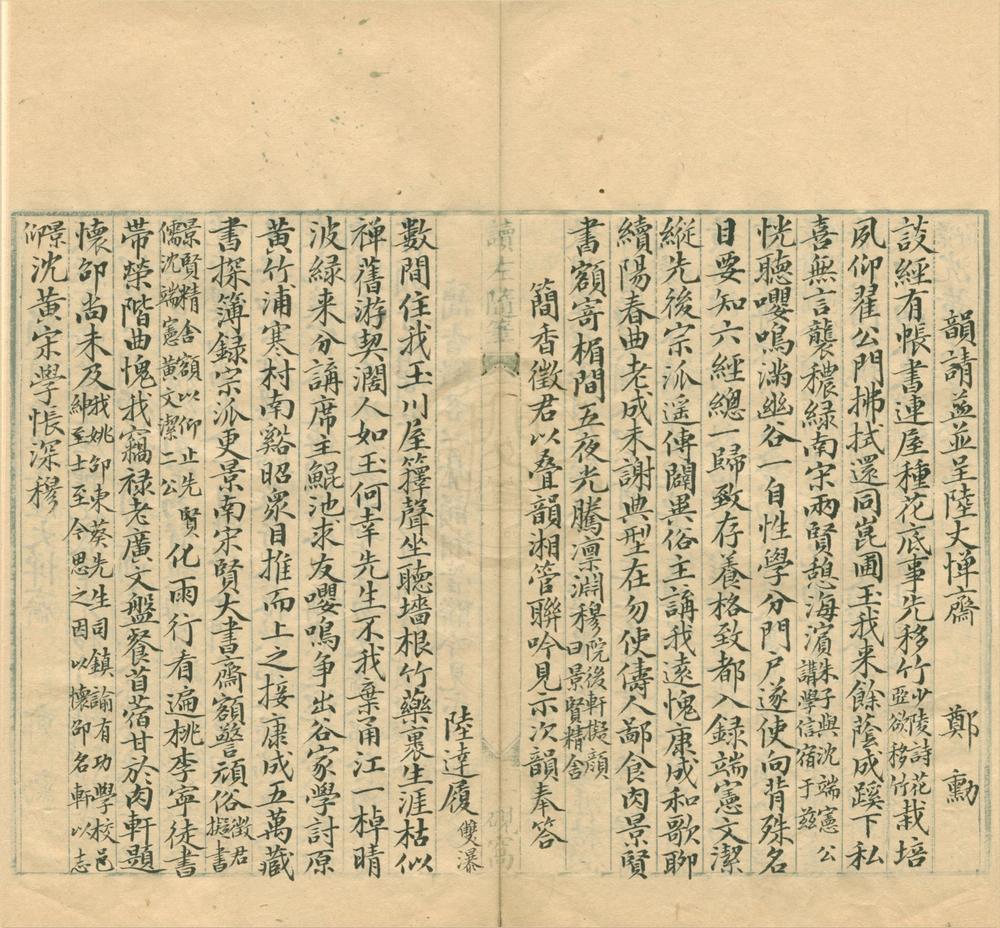 韻請益並呈陸丈憚齋　鄭勳
談經有帳書連屋種花底事先移竹少陵詩花亞欲移竹栽培
夙仰翟公門拂拭還同崑圃玉我來餘蔭成蹊下私
喜無言襲穠綠南宋兩賢憩海濱朱子與沈端憲公講學信宿于茲
恍聽嚶鳴滿幽谷一自性學分門戶遂使向背殊名
目要知六經總一歸致存養格致都入録端憲文潔
縱先後宗派遥傳闢異俗主講我遠愧康成和歌聊
續陽春曲老成未謝典型在勿使儔人鄙食肉景賢
書額寄楣間五夜光騰凛淵穆院後軒擬顔曰景賢精舍
簡香徵君以叠韻湘管聯吟見示次韻奉答
陸達履雙瀑
數間住我玉川屋籜聲坐聽墻根竹藥裹生涯枯似
禅舊游契濶人如玉何幸先生不我棄甬江一棹晴
波緑来分講席主鯤池求友嚶鳴争出谷家學討原
黄竹浦寒村南谿昭衆目推而上之接康成五萬藏
書探簿録宗派更景南宋賢大書齋額警頑俗徵君擬書
景賢精舍額以仰止先賢儒沈端憲黄文潔二公化雨行看遍桃李寧徒書
帶榮階曲愧我竊禄老廣文盤餐苜蓿甘於肉軒題
懷邵尚未及我姚邵東葵先生司鎮諭有功學校邑紳至士至今思之因以懷邵名軒以志
景仰沈黄宋學悵深穆